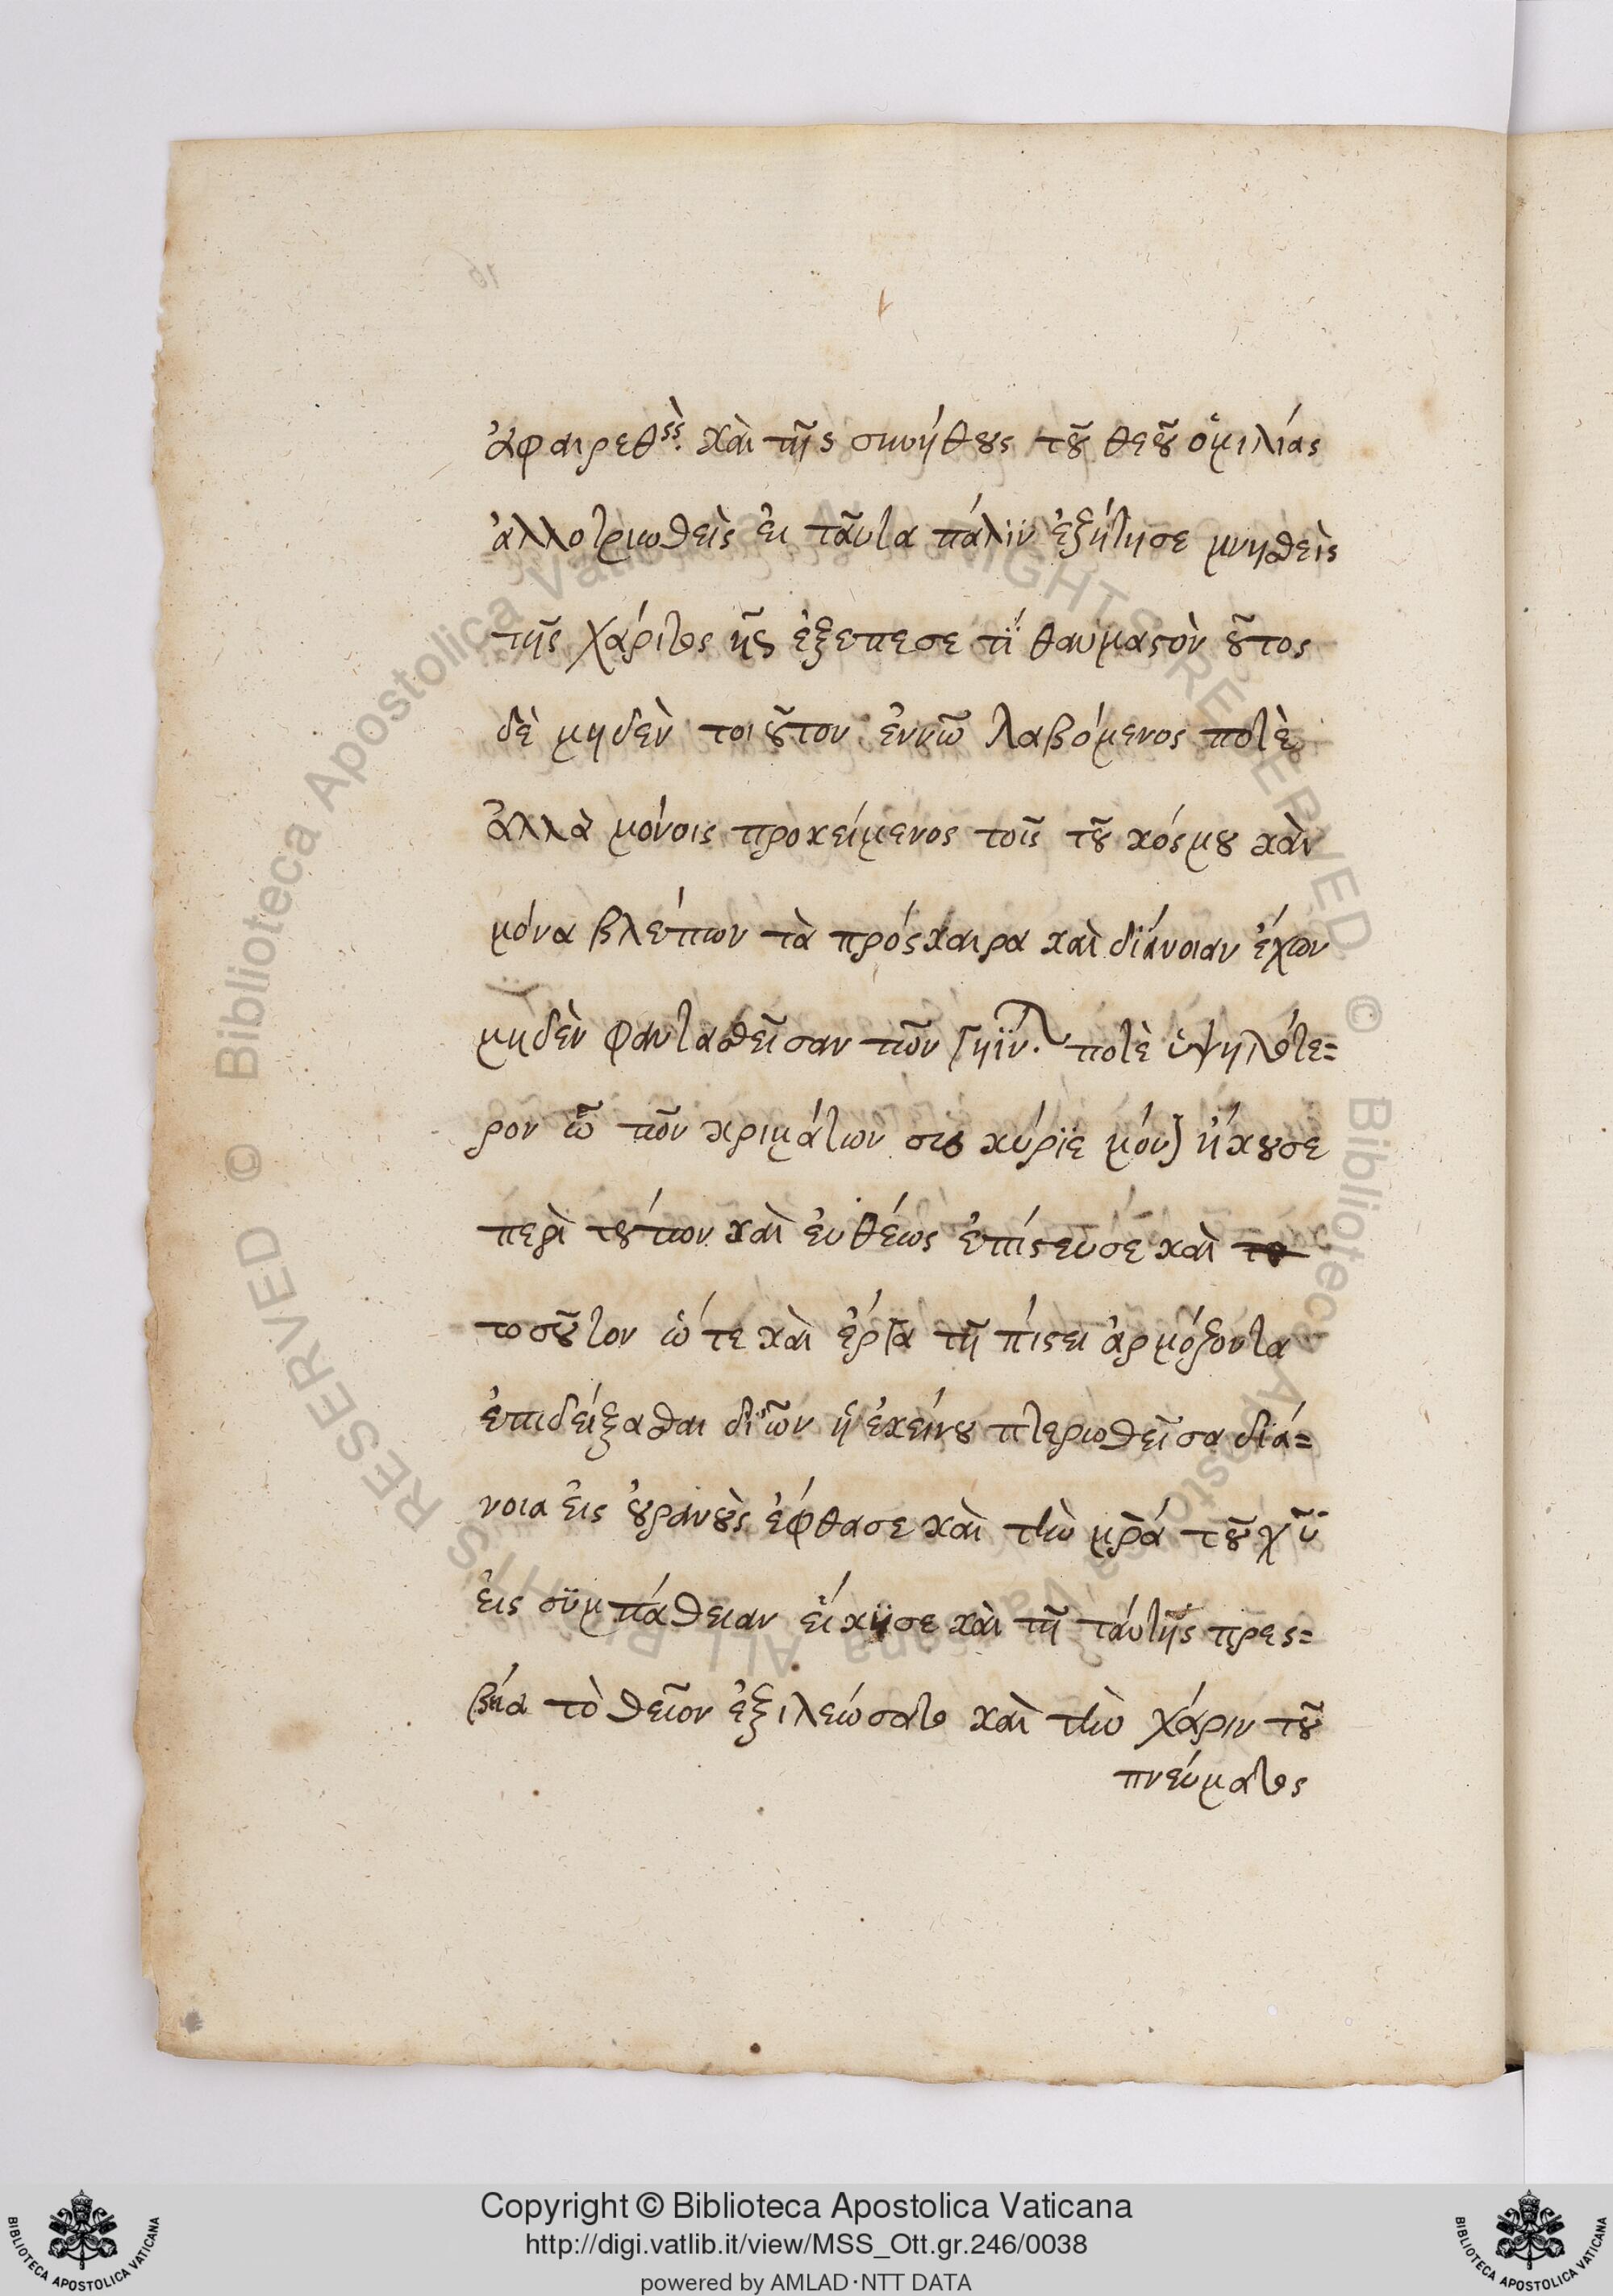 ἀφαιρεθεὶς καὶ τῆς συνήθους τοῦ θεοῦ ὁμιλίας
ἀλλοτριωθεὶς ἐι ταῦτα πάλϊν ἐξήτησε μνηθεὶς
τῆς χάριτος ἧς ἐξέπεσε τί θαυμαστὸν οὗτος
δὲ μηδὲν τοιοῦτον ἐννῶ λαβόμενος ποτὲ
ἀλλὰ μόνοις προκείμενος τοῖς τοῦ κόσμου κὰν
μόνα βλέπων τὰ πρόσκαιρα καὶ διάνοιαν ἔχων
μηδὲν φανταθεῖσαν τῶν γηΐν. ποτὲ ὑψηλότε=
ρον ὦ τῶν κριμάτων σου κύρϊε μόν] ἤκουσε
περὶ τούτων καὶ ἐυθέως ἐπίστευσε καὶ το
τοσοῦτον ὥ τε καὶ ἔργα τῇ πίστει ἁρμόζοντα
ἐπιδείξασθαι δι' ὧν ἡ ἐκείνου πτερωθεῖσα διά=
νοια ἐις ὀυρανοὺς ἔφθασε καὶ τὴν μρ̅ά τοῦ χυ̅
ἐις σϋμπάθειαν εἵκϋσε καὶ τῇ ταύτῆς πρεσ=
βεία τὸ θεῖον ἐξιλεώσατο καὶ τὴν χάριν τοῦ
πνεύματος
Copyright © Biblioteca Apostolica Vaticana
http://digi.vatlib.it/view/MSS_Ott.gr.246/0038
powered by AMLAD·NTT DATA
BIBLIOTECA APOSTOLICA VATICANA
BIBLIOTECA APOSTOLICA VATICANA
© Biblioteca Apostolica Vaticana ALL RIGHTS RESERVED
© Biblioteca Apostolica Vaticana ALL RIGHTS RESERVED